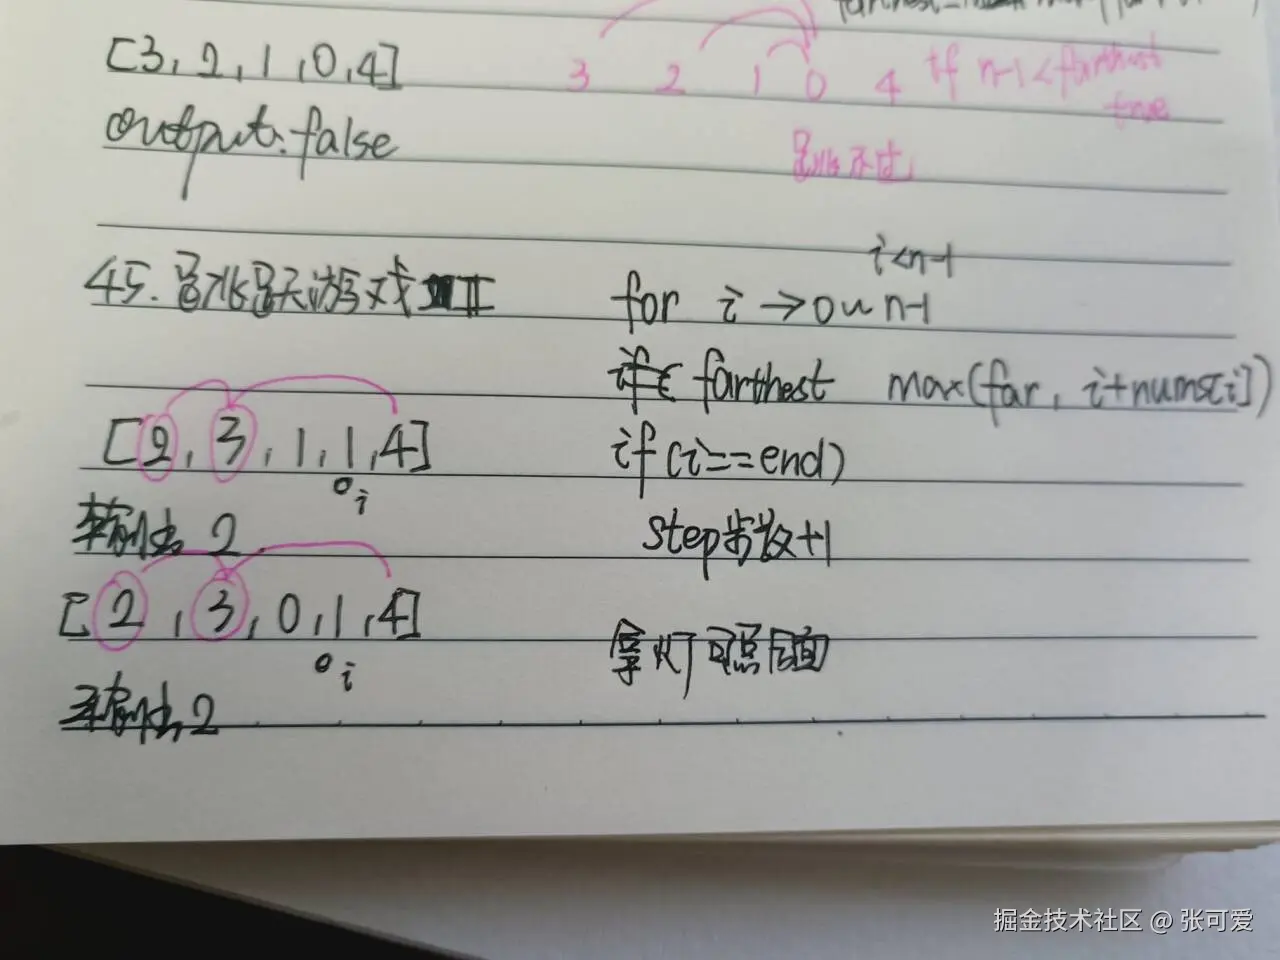 [3, 2, 1, 0, 4]
3 2 1 0 4 if n-1<farthest
true
output: false
跳不过
45. 跳跃游戏 II
i<n-1
for i → 0 ~ n-1
farthest max(far, i+nums[i])
[2, 3, 1, 1, 4]
i
if (i==end)
输出 2
step步数+1
[2, 3, 0, 1, 4]
i
拿灯可照后面
输出 2
掘金技术社区 @ 张可爱